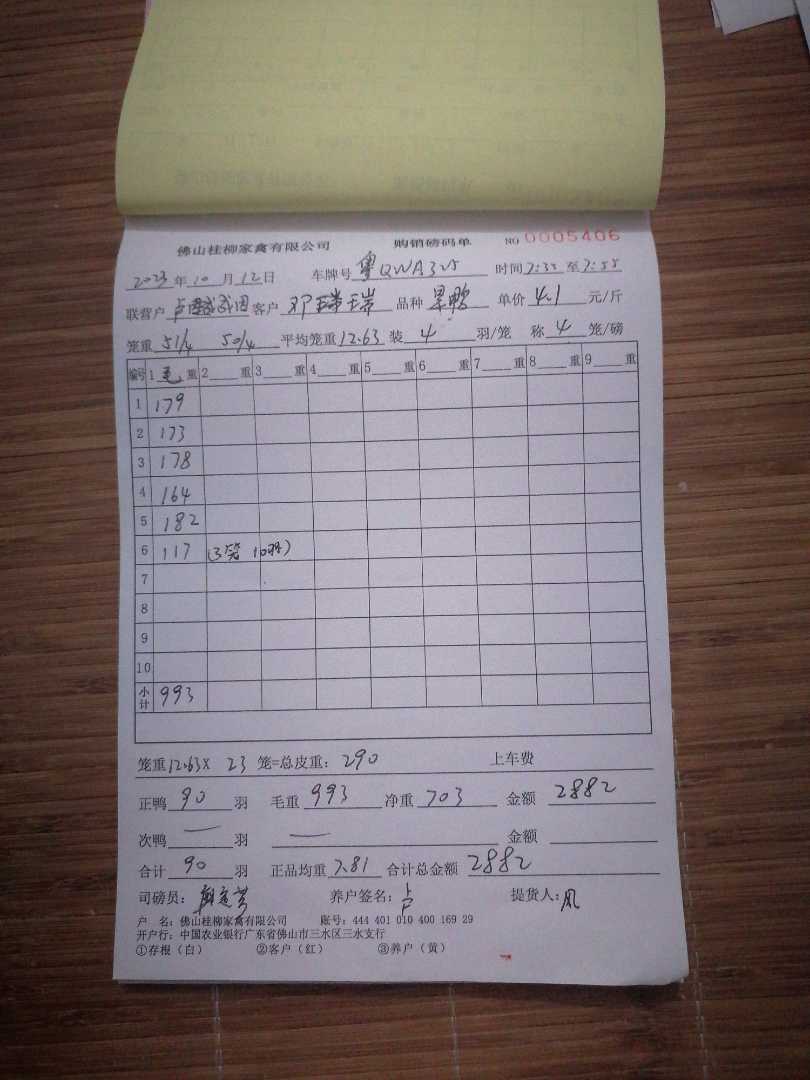 佛山桂柳家禽有限公司 购销磅码单 NO 0005406
2023年10月12日 车牌号 粤QWA325 时间7:35至7:55
联营户 客户 邓瑞瑞 品种 单价4.1元/斤
笼重 51/4 50/4 平均笼重12.63 装 4 羽/笼 称 4 笼/磅
编号 1毛重 2 重 3 重 4 重 5 重 6 重 7 重 8 重 9 重
1 179
2 173
3 178
4 164
5 182
6 117 (3笼 10羽)
7
8
9
10
小计 993
笼重12.63X 23 笼=总皮重: 290 上车费
正鸭 90 羽 毛重 993 净重 703 金额 2882
次鸭 — 羽 — 金额
合计 90 羽 正品均重 7.81 合计总金额 2882
司磅员: 养户签名: 卢 提货人: 凤
户 名: 佛山桂柳家禽有限公司 账号: 444 401 010 400 169 29
开户行: 中国农业银行广东省佛山市三水区三水支行
①存根(白) ②客户(红) ③养户(黄)